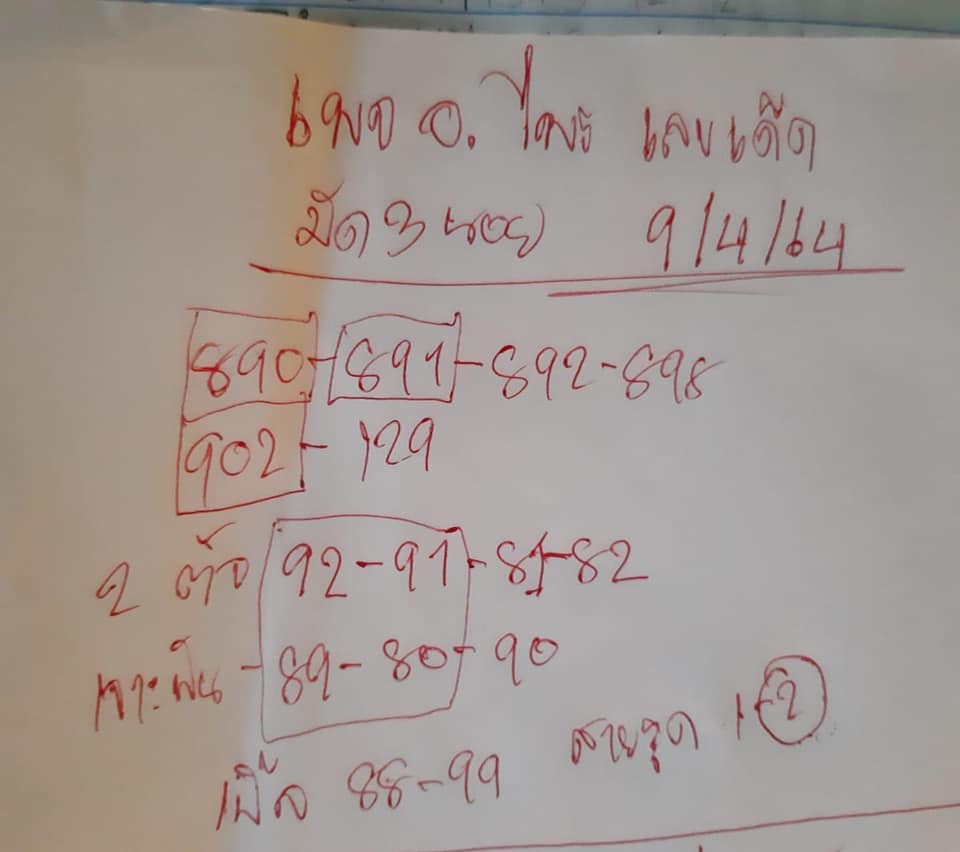 เพจ อ. ไพร เลขเด็ด
มัด 3 หอย 9/4/64
890-891-892-898
902-129
2 ตัว 92-91-81-82
เจาะฟัน -89-80-90
เบิ้ล 88-99 สายรูด 1-2